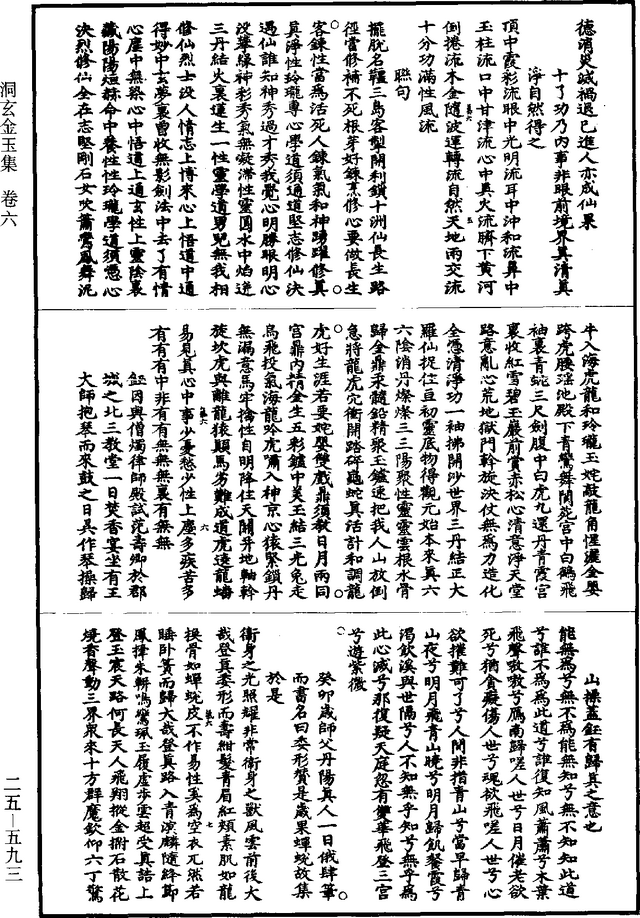 德消災滅禍退已進人亦成仙果
十了功乃内事非眼前境界真清真
淨自然得之
頂中霞彩流眼中光明流耳中沖和流鼻中
玉柱流口中甘津流心中真火流臍下黄河
倒捲流木金隨波運轉流自然天地兩交流
十分功滿性風流
聯句
擺脱名韁三島客掣開利鎖十洲仙長生路
徑當修補不死根芽好鍊烹修心要做長生
客鍊性當爲活死人鍊氣氣和神踴躍修真
真淨性玲瓏專心學道須通道堅志修仙決
遇仙誰知神秀過才秀我覺心明勝眼明心
没攀緣神彩秀氣無凝滯性靈圓水中焰迸
三丹結火裏蓮生一性靈學道男兒無我相
修仙烈士没人情志上博來心上悟道中通
得妙中玄夢裏曾收無影劍法中去了有情
心塵中無染心中悟道上通玄性上靈陰裏
藏陽陽烜赫命中養性性玲瓏學道須憑心
決烈修仙全在志堅剛石女吹簫鸞鳳舞泥
牛入海虎龍和玲瓏玉姹敲龍角惺灑金嬰
跨虎腰瑶池殿下青鸞舞閬苑宫中白鶴飛
袖裏青蛇三尺劍腹中白虎九還丹青霞宫
裏收紅雪碧玉巖前賞赤松心清意淨天堂
路意亂心荒地獄門斡旋決仗無爲力造化
全憑清淨功一袖拂開沙世界三丹結正大
羅仙捉住亘初靈底物得觀元始本來真六
六陰消丹燦燦三三陽聚性靈靈雲根水骨
歸金鼎汞髓鉛精聚玉鑪速把我人山放倒
急將龍虎穴衝開路碎龜蛇真活計和調龍
虎好生涯若要姹嬰雙戲鼎須教日月兩同
宫鼎内精金生五彩鑪中美玉結三光兔走
烏飛投氣海龍吟虎嘯入神京心猿緊鎖丹
無漏意馬牢擒性自明降住天關并地軸斡
旋坎虎與離龍猿顛馬劣難成道虎遶龍蟠
易見真心中事少憂愁少性上塵多疾苦多
有有有中非有有無無無裏有無無
鉦因與僧燭律師殿試范壽卿於郡
城之北三教堂一日焚香宴坐有王
大師抱琴而來鼓之曰吴作琴操歸
山操蓋鉦有歸真之意也
能無爲兮無不爲能無知兮無不知知此道
兮誰不爲爲此道兮誰復知風蕭蕭兮木葉
飛聲嗷嗷兮鴈南歸嗟人世兮日月催老欲
死兮猶貪癡傷人世兮魂欲飛嗟人世兮心
欲摧難可了兮人間非指青山兮當早歸青
山夜兮明月飛青山曉兮明月歸飢餐霞兮
渴飲溪與世隔兮人不知無乎知兮無乎爲
此心滅兮那復疑天庭忽有雙華飛登三宫
兮遊紫微
癸卯歲師父丹陽真人一日俄肆筆
而書名曰委形贊是歲果蟬蛻故集
於是
衞身之光照耀非常衞身之獸風雲前後大
哉登真委形而壽紺髮青眉紅頰素肌如龍
換骨如蟬蛻皮不作易性奚爲空衣兀然若
睡卧簀而歸大哉登真路入青溟麟隨絳節
鳳挿朱軿鳴鸞珮玉履虚步雲超受真誥上
登玉宸天路何長天人飛翔摐金拊石散花
燒香聲動三界衆來十方群魔欽仰六丁驚
洞玄金玉集 卷六
二五—五九三